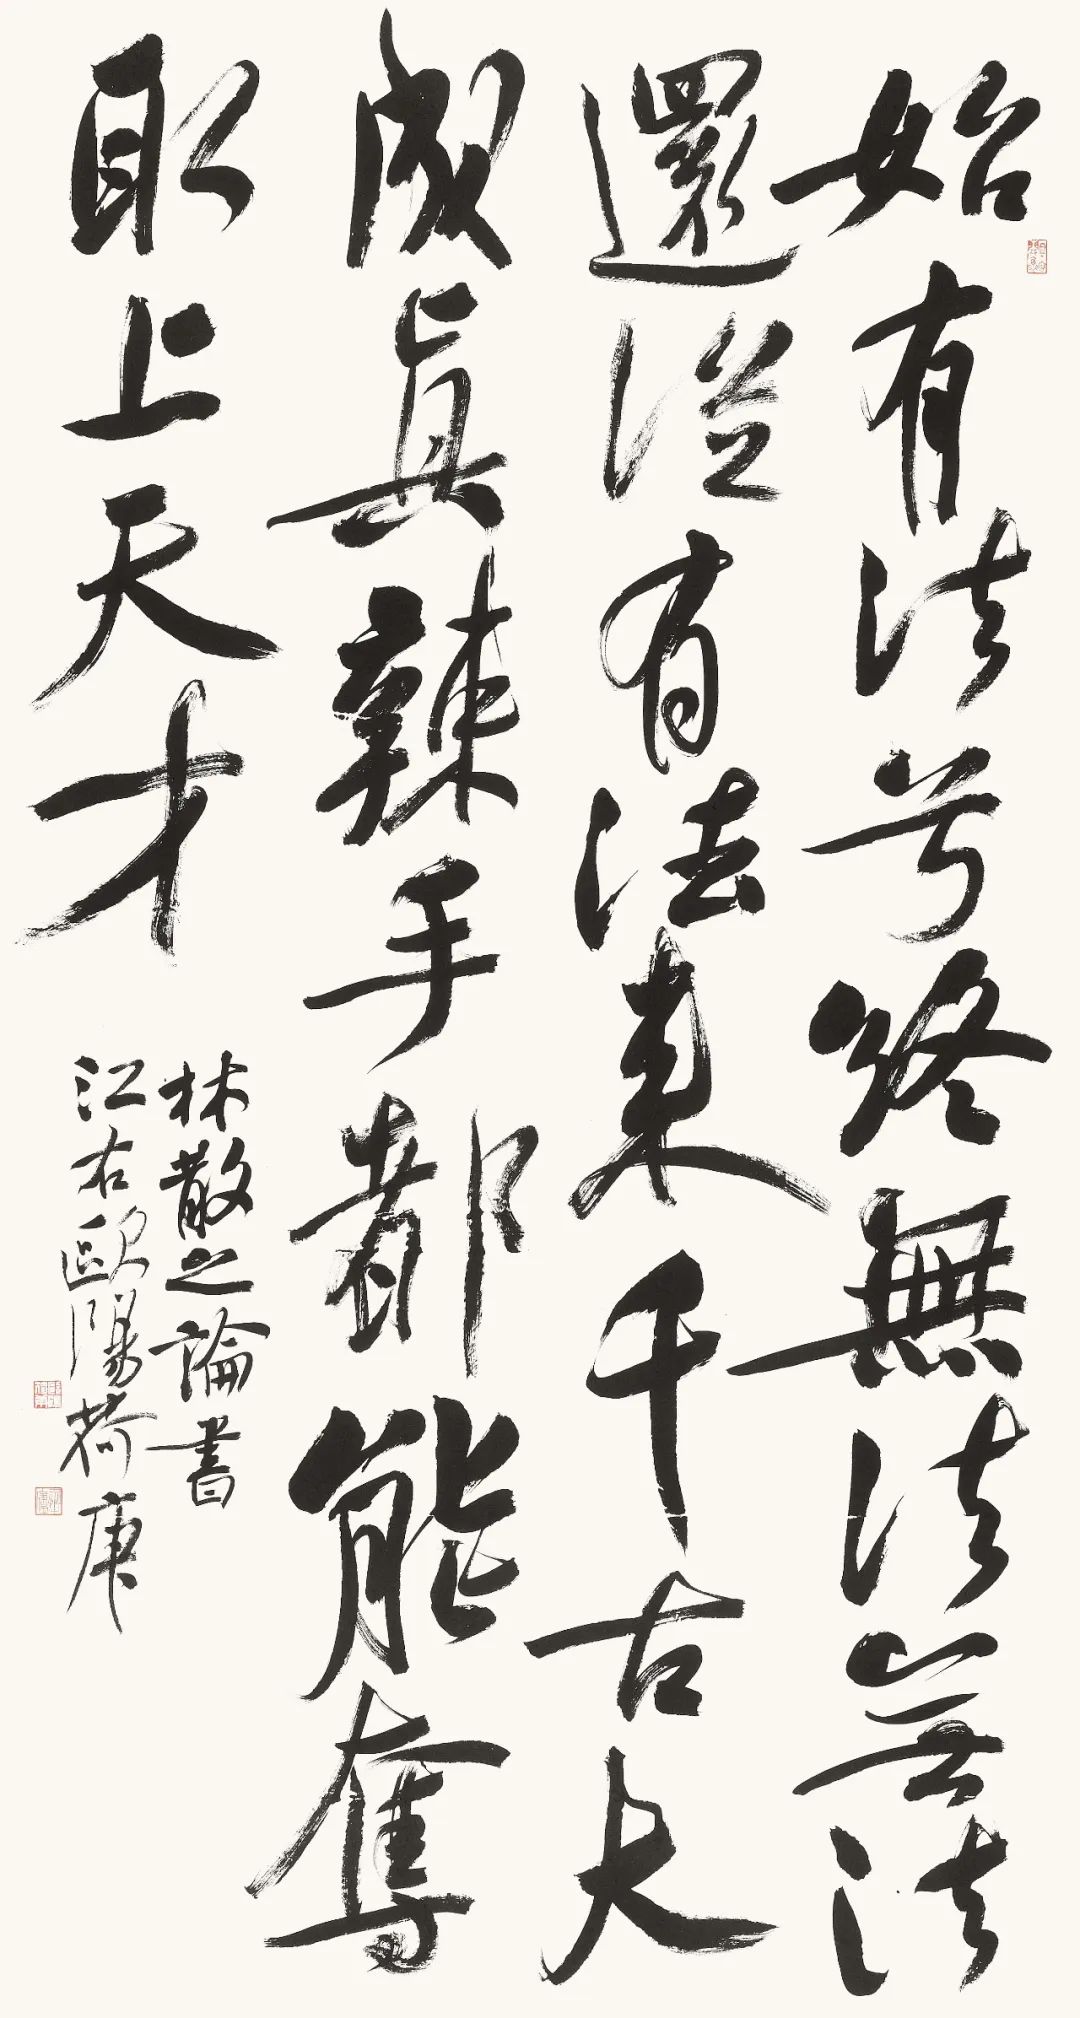 始有法兮終無法無法
還從有法來千古大
成真辣手都能奪
取上天才
林散之論書
江右歐陽荷庚